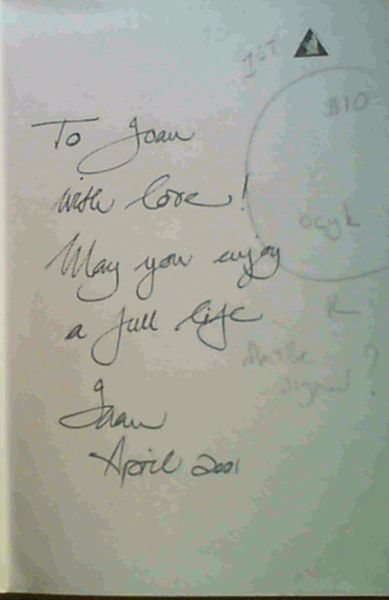 1ST
$10
To Joan
with love!
ocyk
May you enjoy
a full life
K
Maybe
signed?
Joan
April 2001